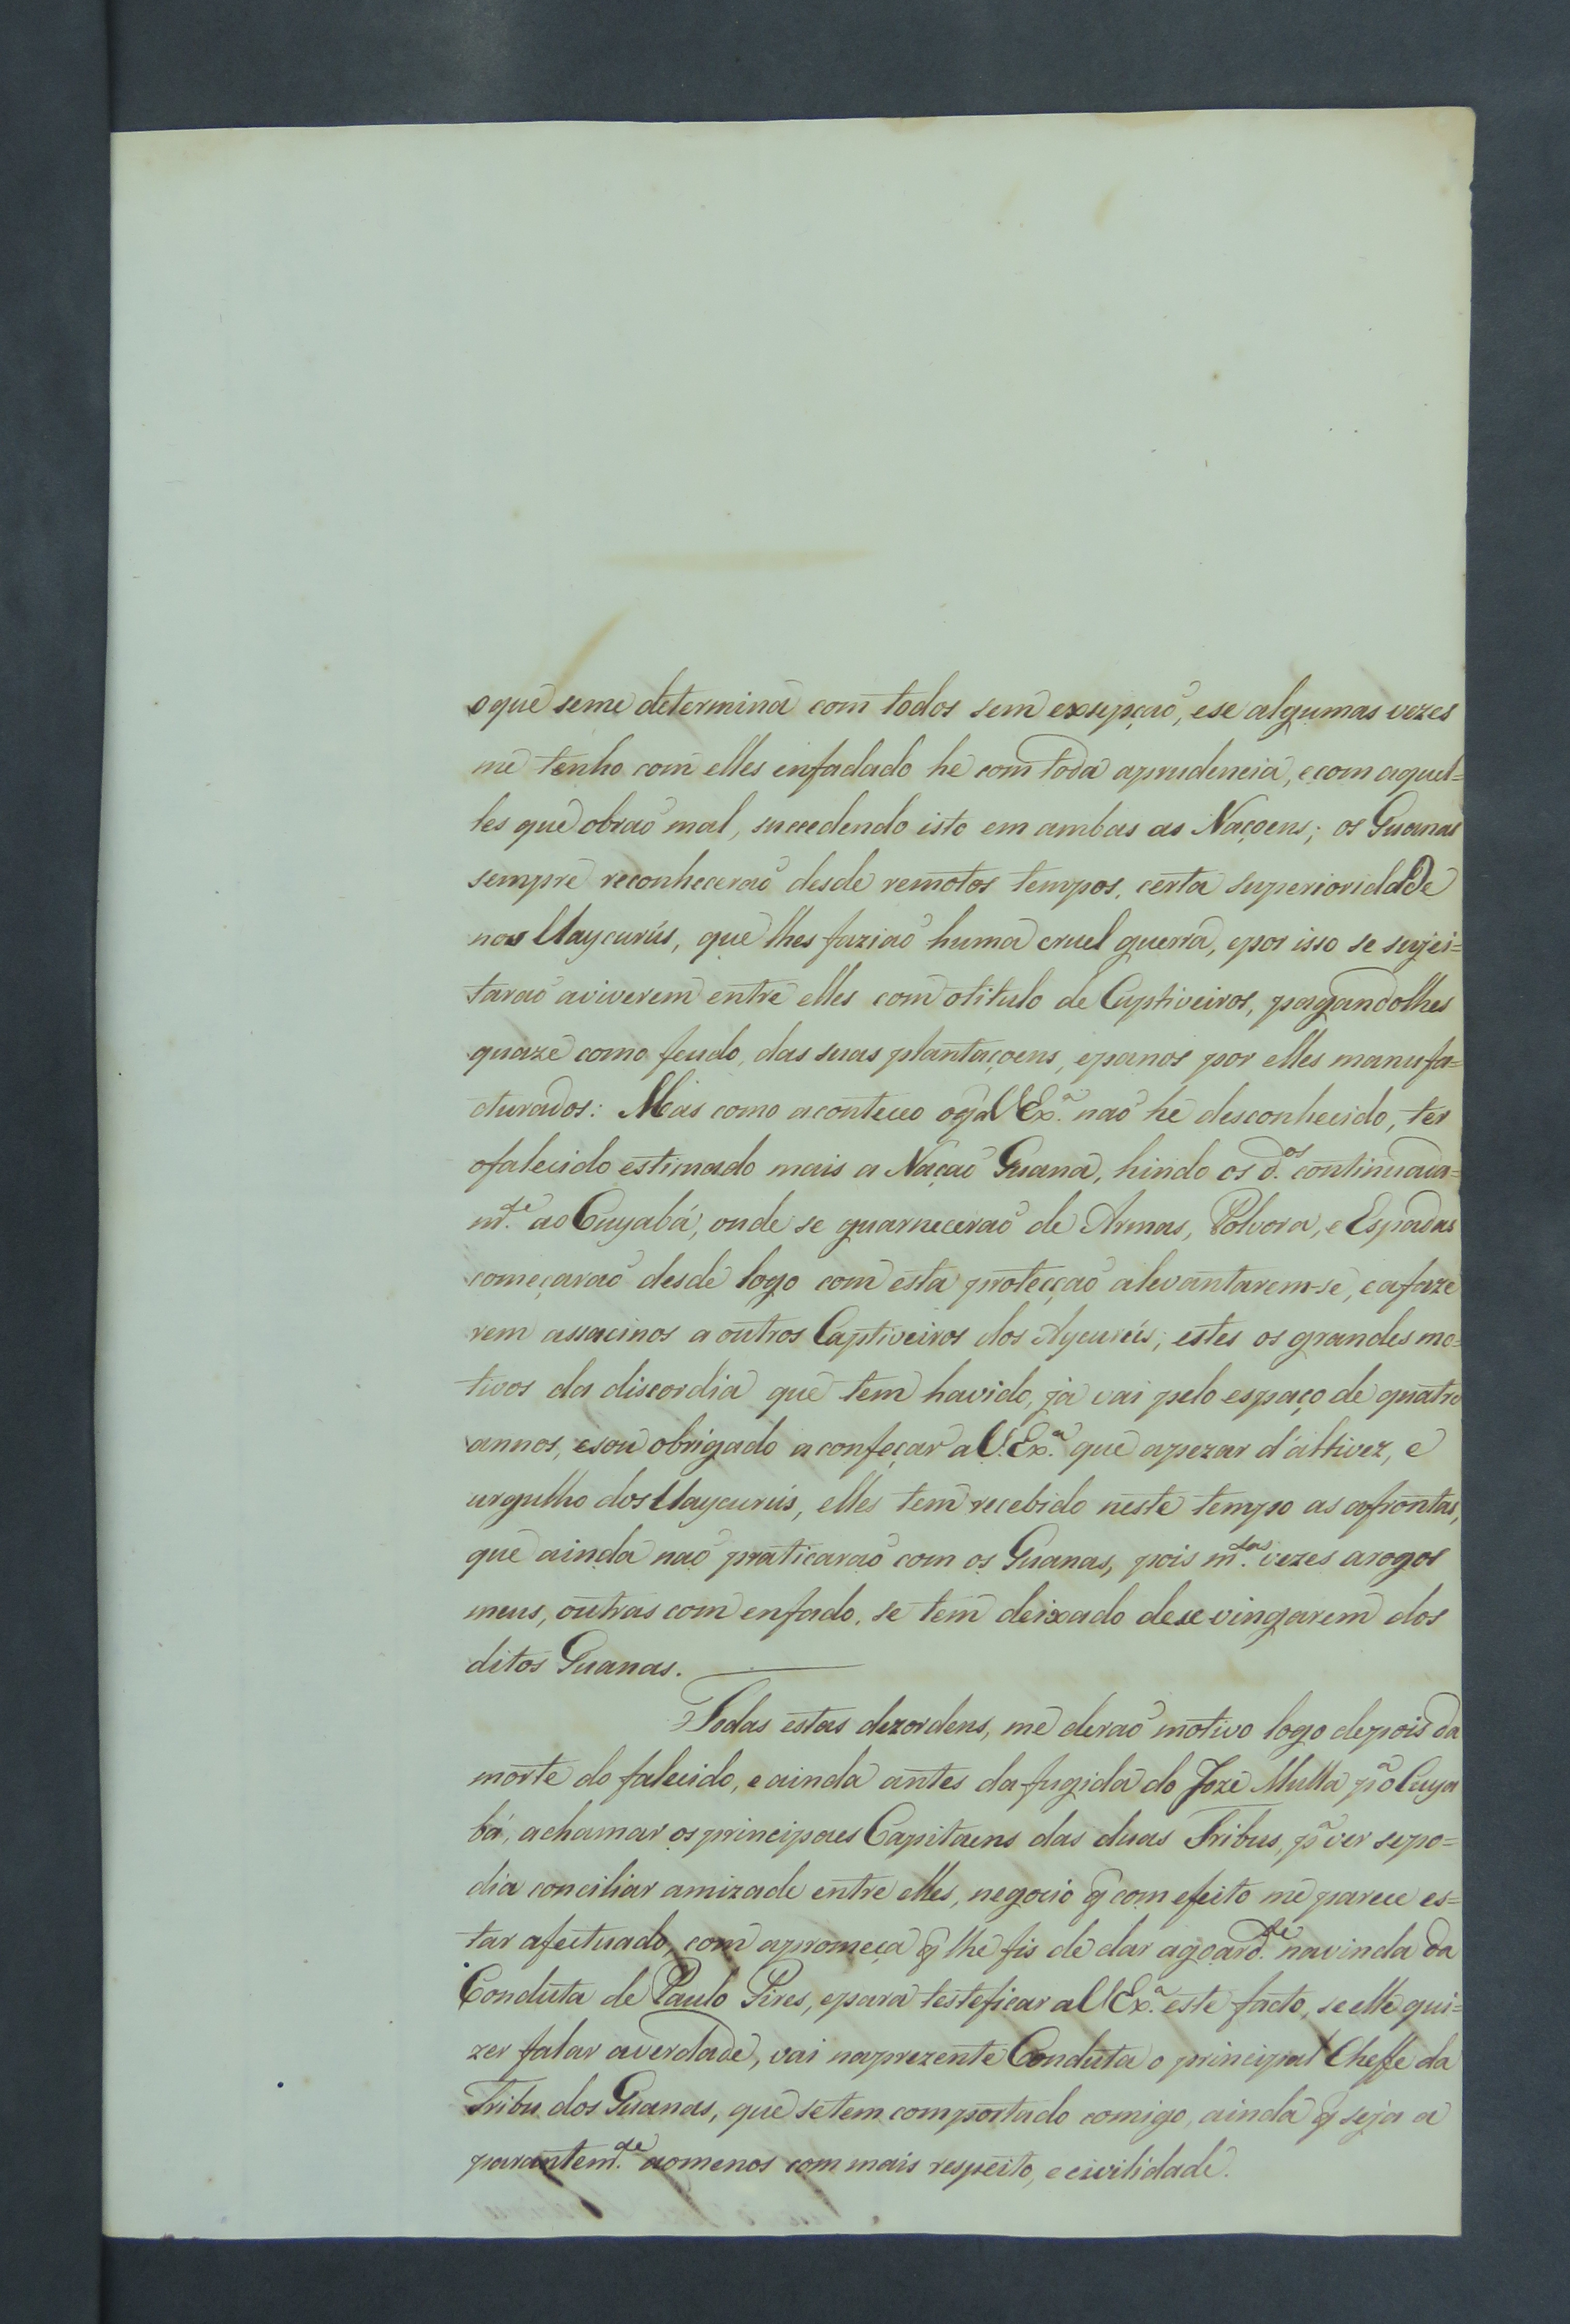 oque seme determina com todos sem exsepçaõ, ese algumas vezes
me tenho com elles enfadado he com toda aprudencia, ecom aquel=
les que obraõ mal, succedendo isto em ambas as Naçoens; os Guanas
sempre reconheceraõ desde remotos tempos, certa superioridade
nos Uaycurús, que lhes faziaõ huma cruel guerra, epor isso se sujei=
taraõ aviverem entre elles com otitulo de Captiveiros, pagandolhes
quaze como feudo, das suas plantaçoens, epanos por elles manufa=
cturados: Mas como aconteceo oq̃ a V Ex.ª naõ he desconhecido, ter
ofalecido estimado mais a Naçaõ Guana, hindo os d.os continuada=
m.te ao Cuyabá, onde se guarneceraõ de Armas, Polvora, e Espadas
começaraõ desde logo com esta protecçaõ alevantarem-se, eafaze
rem assacinos a outros Captiveiros dos Aycurús; estes os grandes mo=
tivos da discordia que tem havido, já vai pelo espaço de quatro
annos, esou obrigado aconfeçar a V. Ex.ª que apezar d'altivez, e
urgulho dos Uaycurús, elles tem recebido neste tempo as afrontas,
que ainda naõ praticaraõ com os Guanas, pois m.tas vezes arogos
meus, outras com enfado, se tem deixado dese vingarem dos
ditos Guanas.
Todas estas dezordens, me deraõ motivo logo depois da
morte do falecido, eainda antes dafugida do Joze Mutta p.ª o Cuya
bá, achamar os principaes Capitaens das duas Tribus, p.ª ver sepo=
dia conciliar amizade entre elles, negocio q̃ com efeito me parece es=
tar afectuado, com apromeça q̃ lhe fis de dar agoard.te navinda da
Conduta de Paulo Pires, epara testeficar a V Ex.ª este facto, se elle qui=
zer falar averdade, vai naprezente Conduta o principal Cheffe da
Tribu dos Guanas, que setem comportado comigo, ainda q̃ seja a
parantem.te aomenos com mais respeito, ecivilidade.